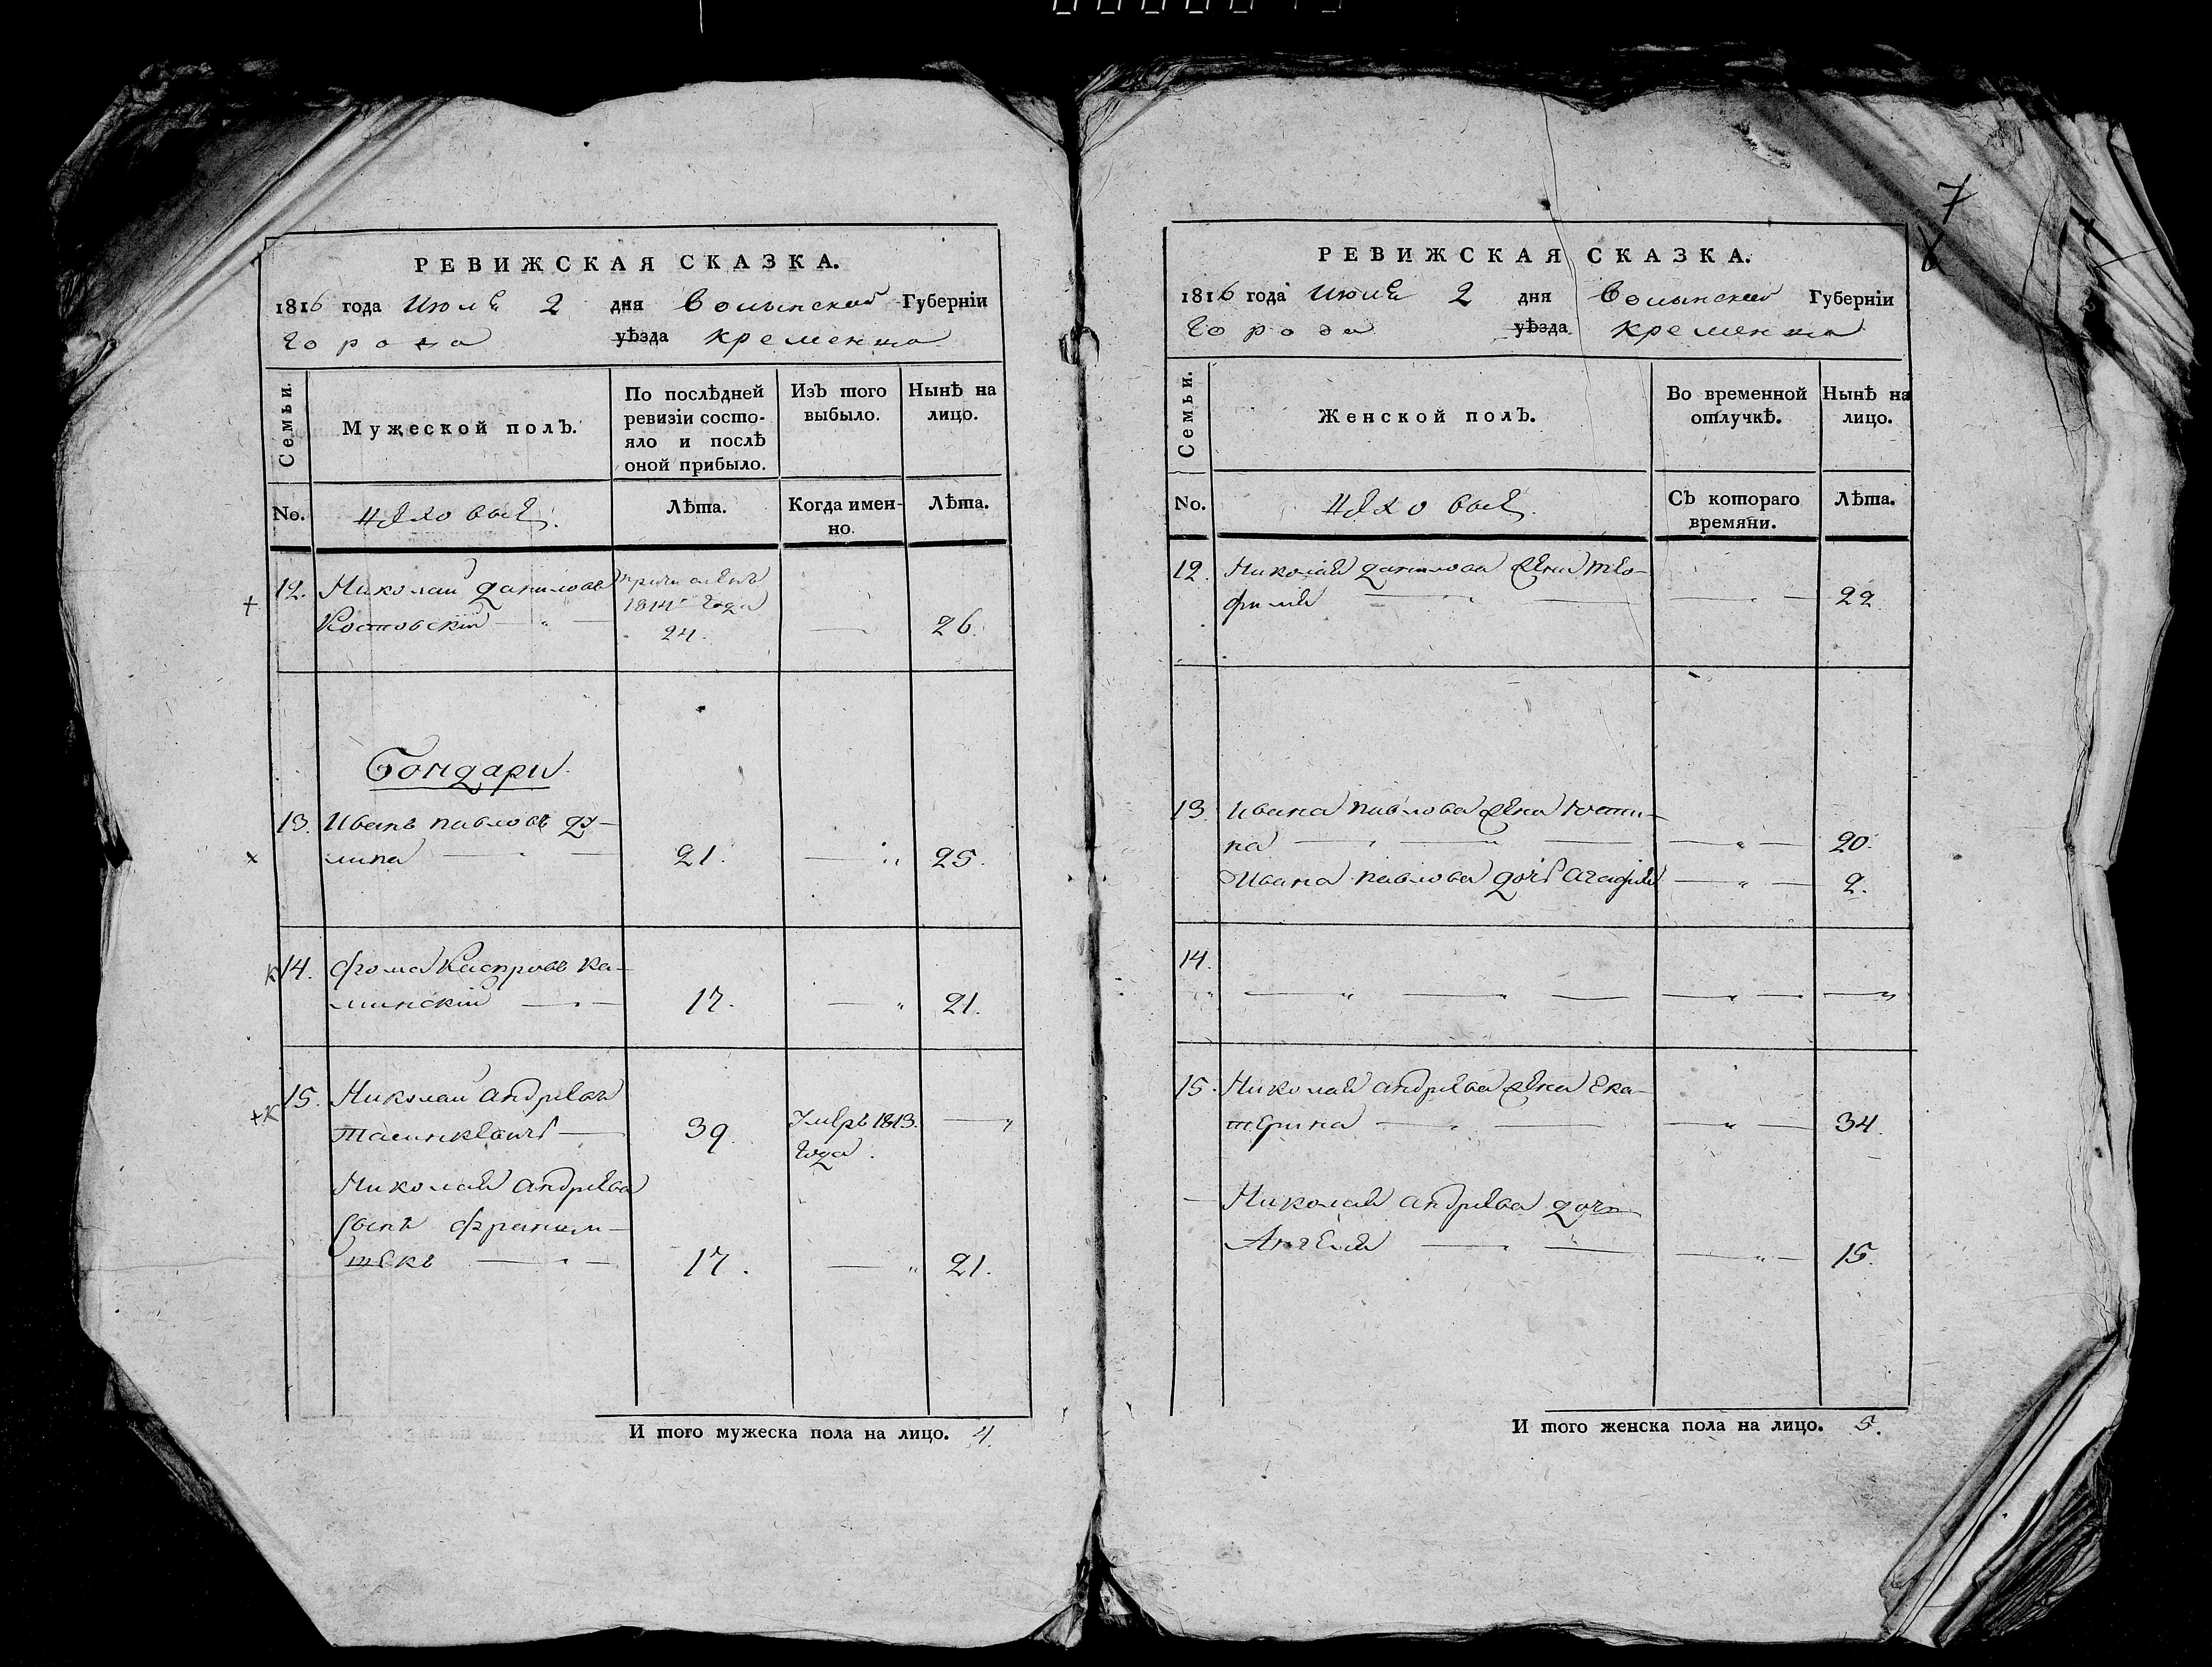 РЕВИЖСКАЯ СКАЗКА.
1816 года Июля 2 дня Волынской Губернїи
Города уѣзда кременца
Семьи. Мужеской полъ. По послѣдней ревизїи состояло и послѣ оной прибыло. Изъ того выбыло. Нынѣ на лицо.
No. цеховые. Лѣта. Когда именно. Лѣта.
12. Николай даниловъ причисленъ
Костовскїй 1814 года 24. 26.
Бондари
13. Иванъ павловъ ду-
липа 21. 25.
14. фома Каспровъ ка-
минскїй 17. 21.
15. Николай андрѣевъ
39. Умеръ 1813. года.
Николая андрѣева
сынъ франци-
шекъ 17. 21.
И того мужеска пола на лицо. 4.
7
РЕВИЖСКАЯ СКАЗКА.
1816 года июля 2 дня Волынской Губернїи
Города уѣзда кременца
Семьи. Женской полъ. Во временной отлучкѣ. Нынѣ на лицо.
No. цеховые. Съ котораго времяни. Лѣта.
12. Николая данилова жена тео-
фила 22.
13. Ивана павлова жена Юсти-
на 20.
Ивана павлова дочь агафия 2.
14.
15. Николая андрѣева жена Ека-
терина 34.
Николая андрѣева дочь
Ангеля 15.
И того женска пола на лицо. 5.